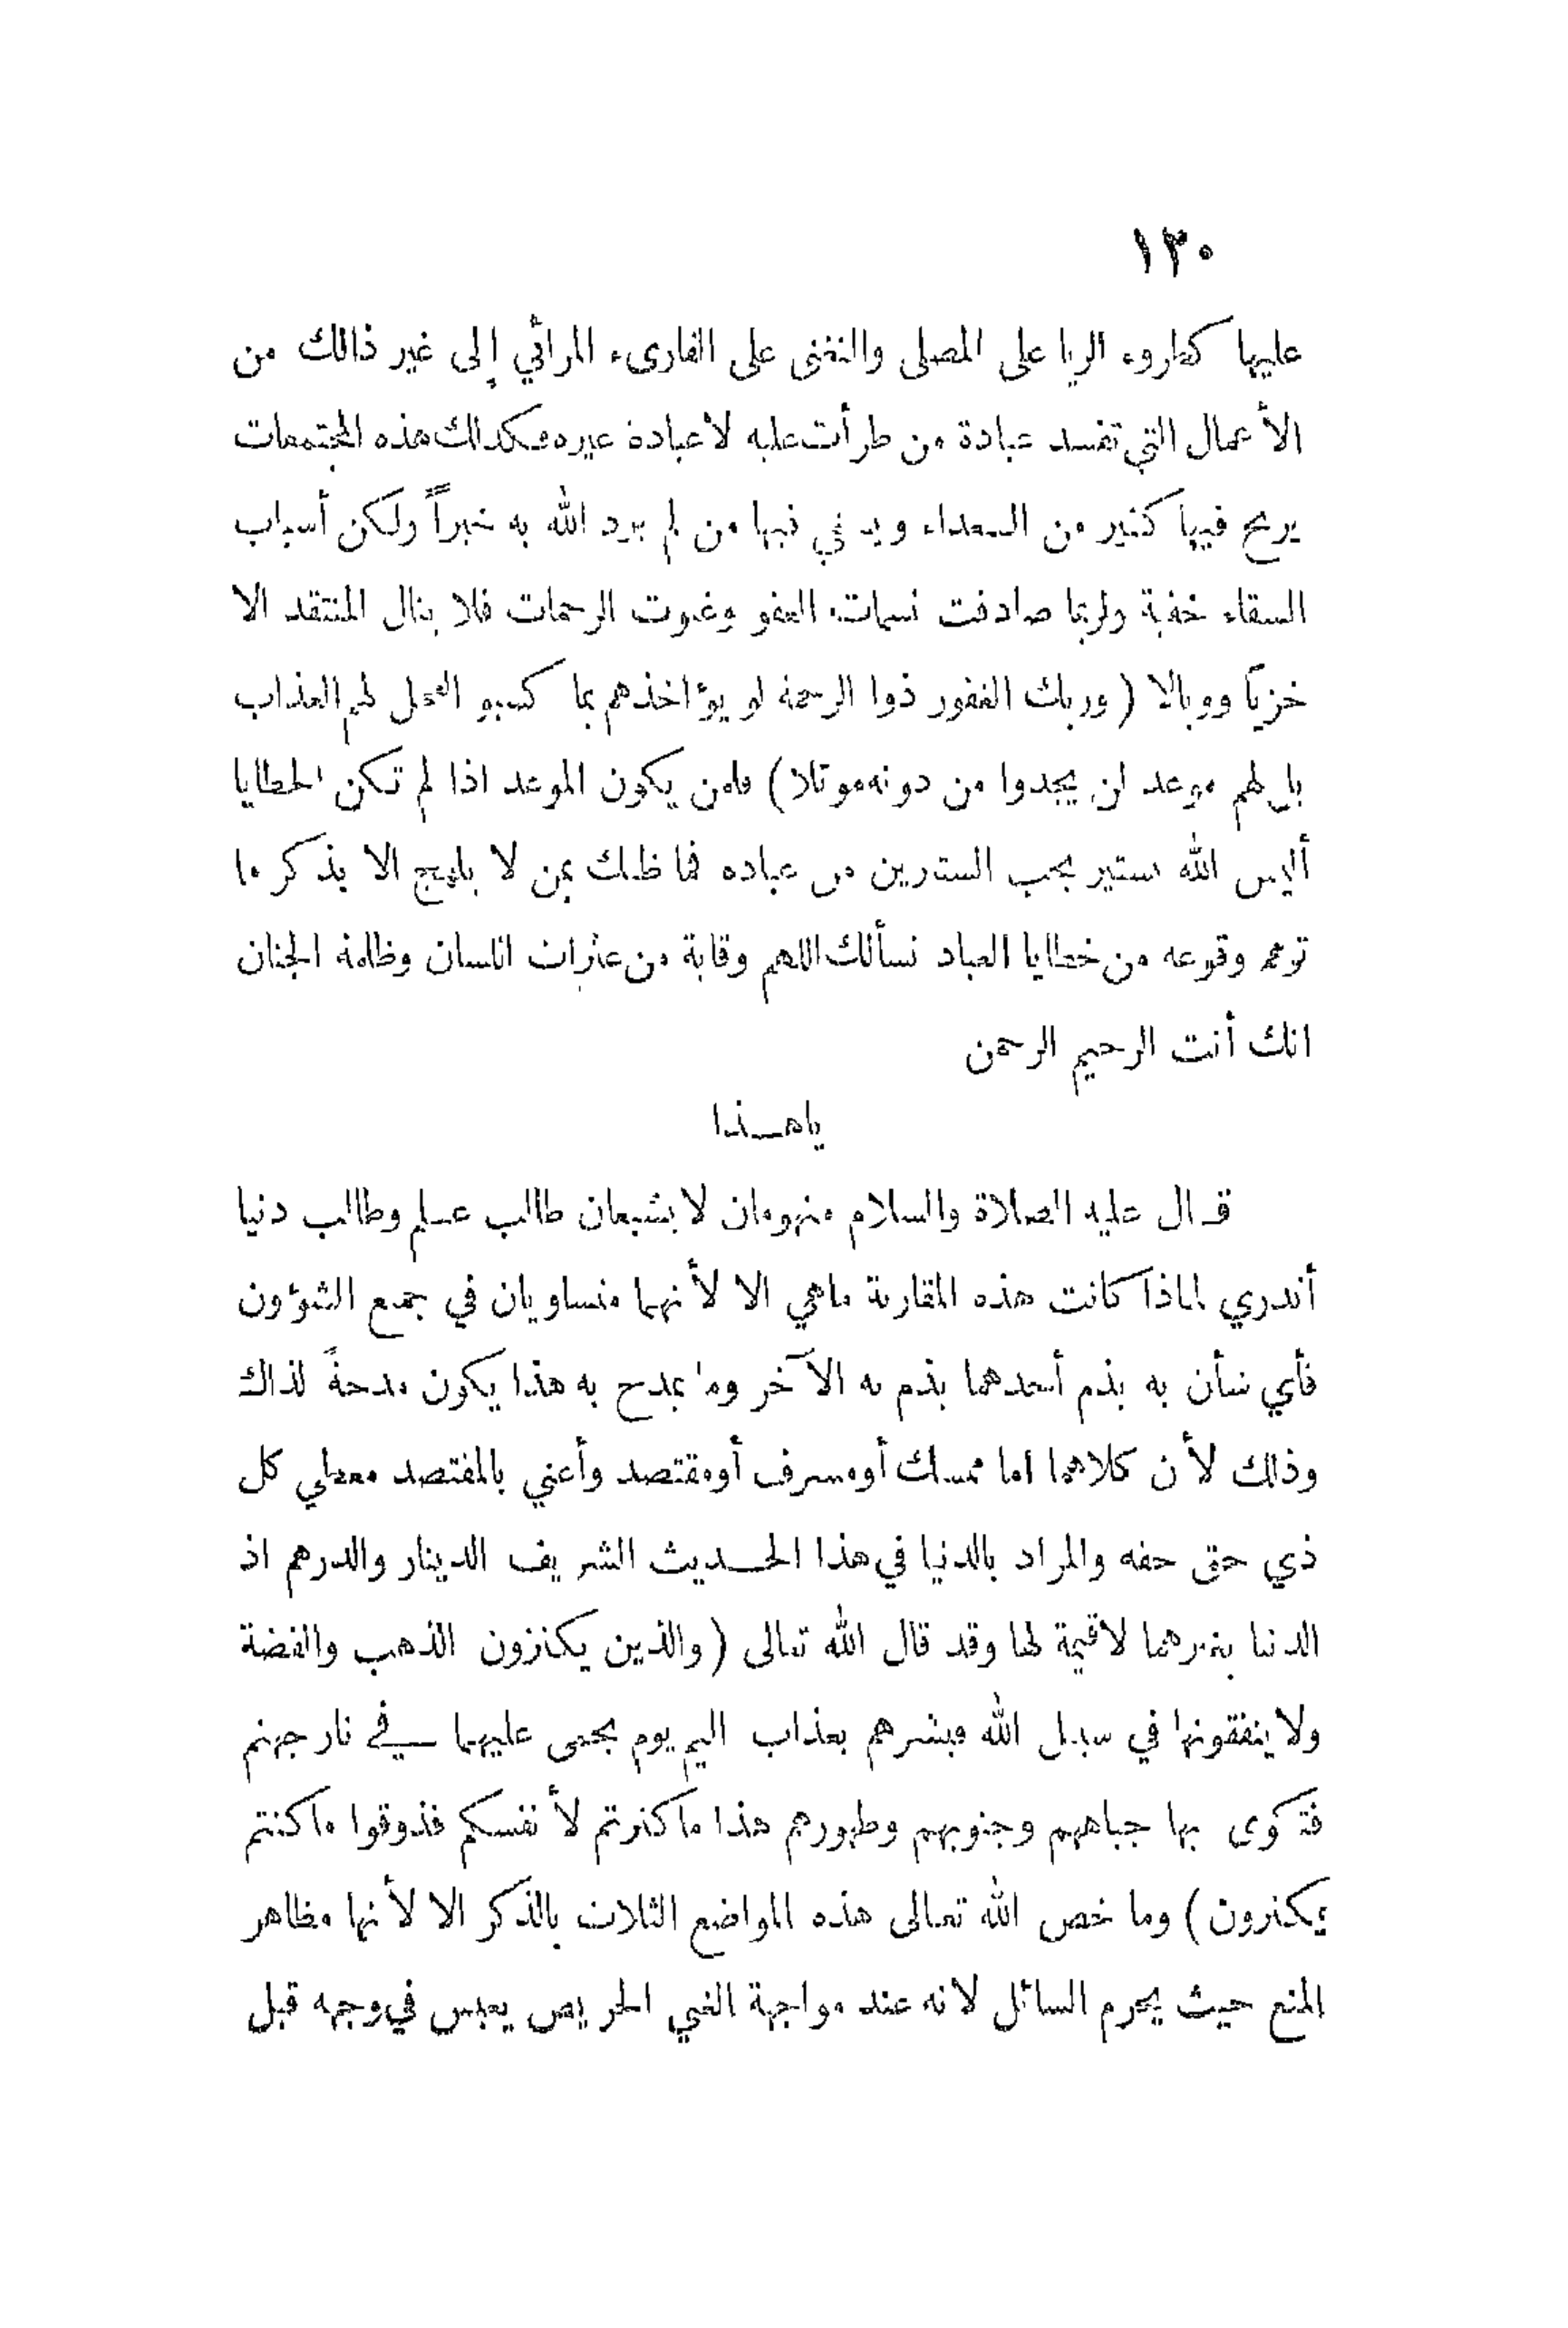 ١٣٠
عليها كطروء الريا على المصلى والتغنى على القارىء المرائي إلى غير ذالك من
الأعمال التي تفسد عبادة من طرأت عليه لا عبادة غيره فكذالك هذه المجتمعات
يربح فيها كثير من السعداء ويشقى فيها من لم يرد الله به خيراً ولكن أسباب
الشقاء خفية ولربما صادفت نسمات العفو وغيوث الرحمات فلا ينال المنتقد الا
خزيًا ووبالا ( وربك الغفور ذوا الرحمة لو يؤاخذهم بما كسبو العجل لهم العذاب
بل لهم موعد لن يجدوا من دونه موئلا ) فلمن يكون الموعد اذا لم تكن الخطايا
أليس الله ستير يحب الستارين من عباده فما ظنك بمن لا يلهج الا بذكر ما
توهم وقوعه من خطايا العباد نسألك اللهم وقاية من عثرات اللسان وظلمة الجنان
انك أنت الرحيم الرحمن
ياهـذا
قال عليه الصلاة والسلام منهومان لا يشبعان طالب علم وطالب دنيا
أتدري لماذا كانت هذه المقارنة ماهي الا لأنهما متساويان في جميع الشؤون
فأي شأن به يذم أحدهما يذم به الآخر وما يمدح به هذا يكون مدحةً لذاك
وذلك لأن كلاهما اما ممسك أو مسرف أو مقتصد وأعني بالمقتصد معطي كل
ذي حق حقه والمراد بالدنيا في هذا الحديث الشريف الدينار والدرهم اذ
الدنيا بغيرهما لا قيمة لها وقد قال الله تعالى ( والذين يكنزون الذهب والفضة
ولا ينفقونها في سبيل الله فبشرهم بعذاب اليم يوم يحمى عليهما في نار جهنم
فتكوى بها جباههم وجنوبهم وظهورهم هذا ما كنزتم لأنفسكم فذوقوا ما كنتم
تكنزون ) وما خص الله تعالى هذه المواضع الثلاث بالذكر الا لأنها مظاهر
المنع حيث يحرم السائل لانه عند مواجهة الغني الحريص يعبس في وجهه قبل